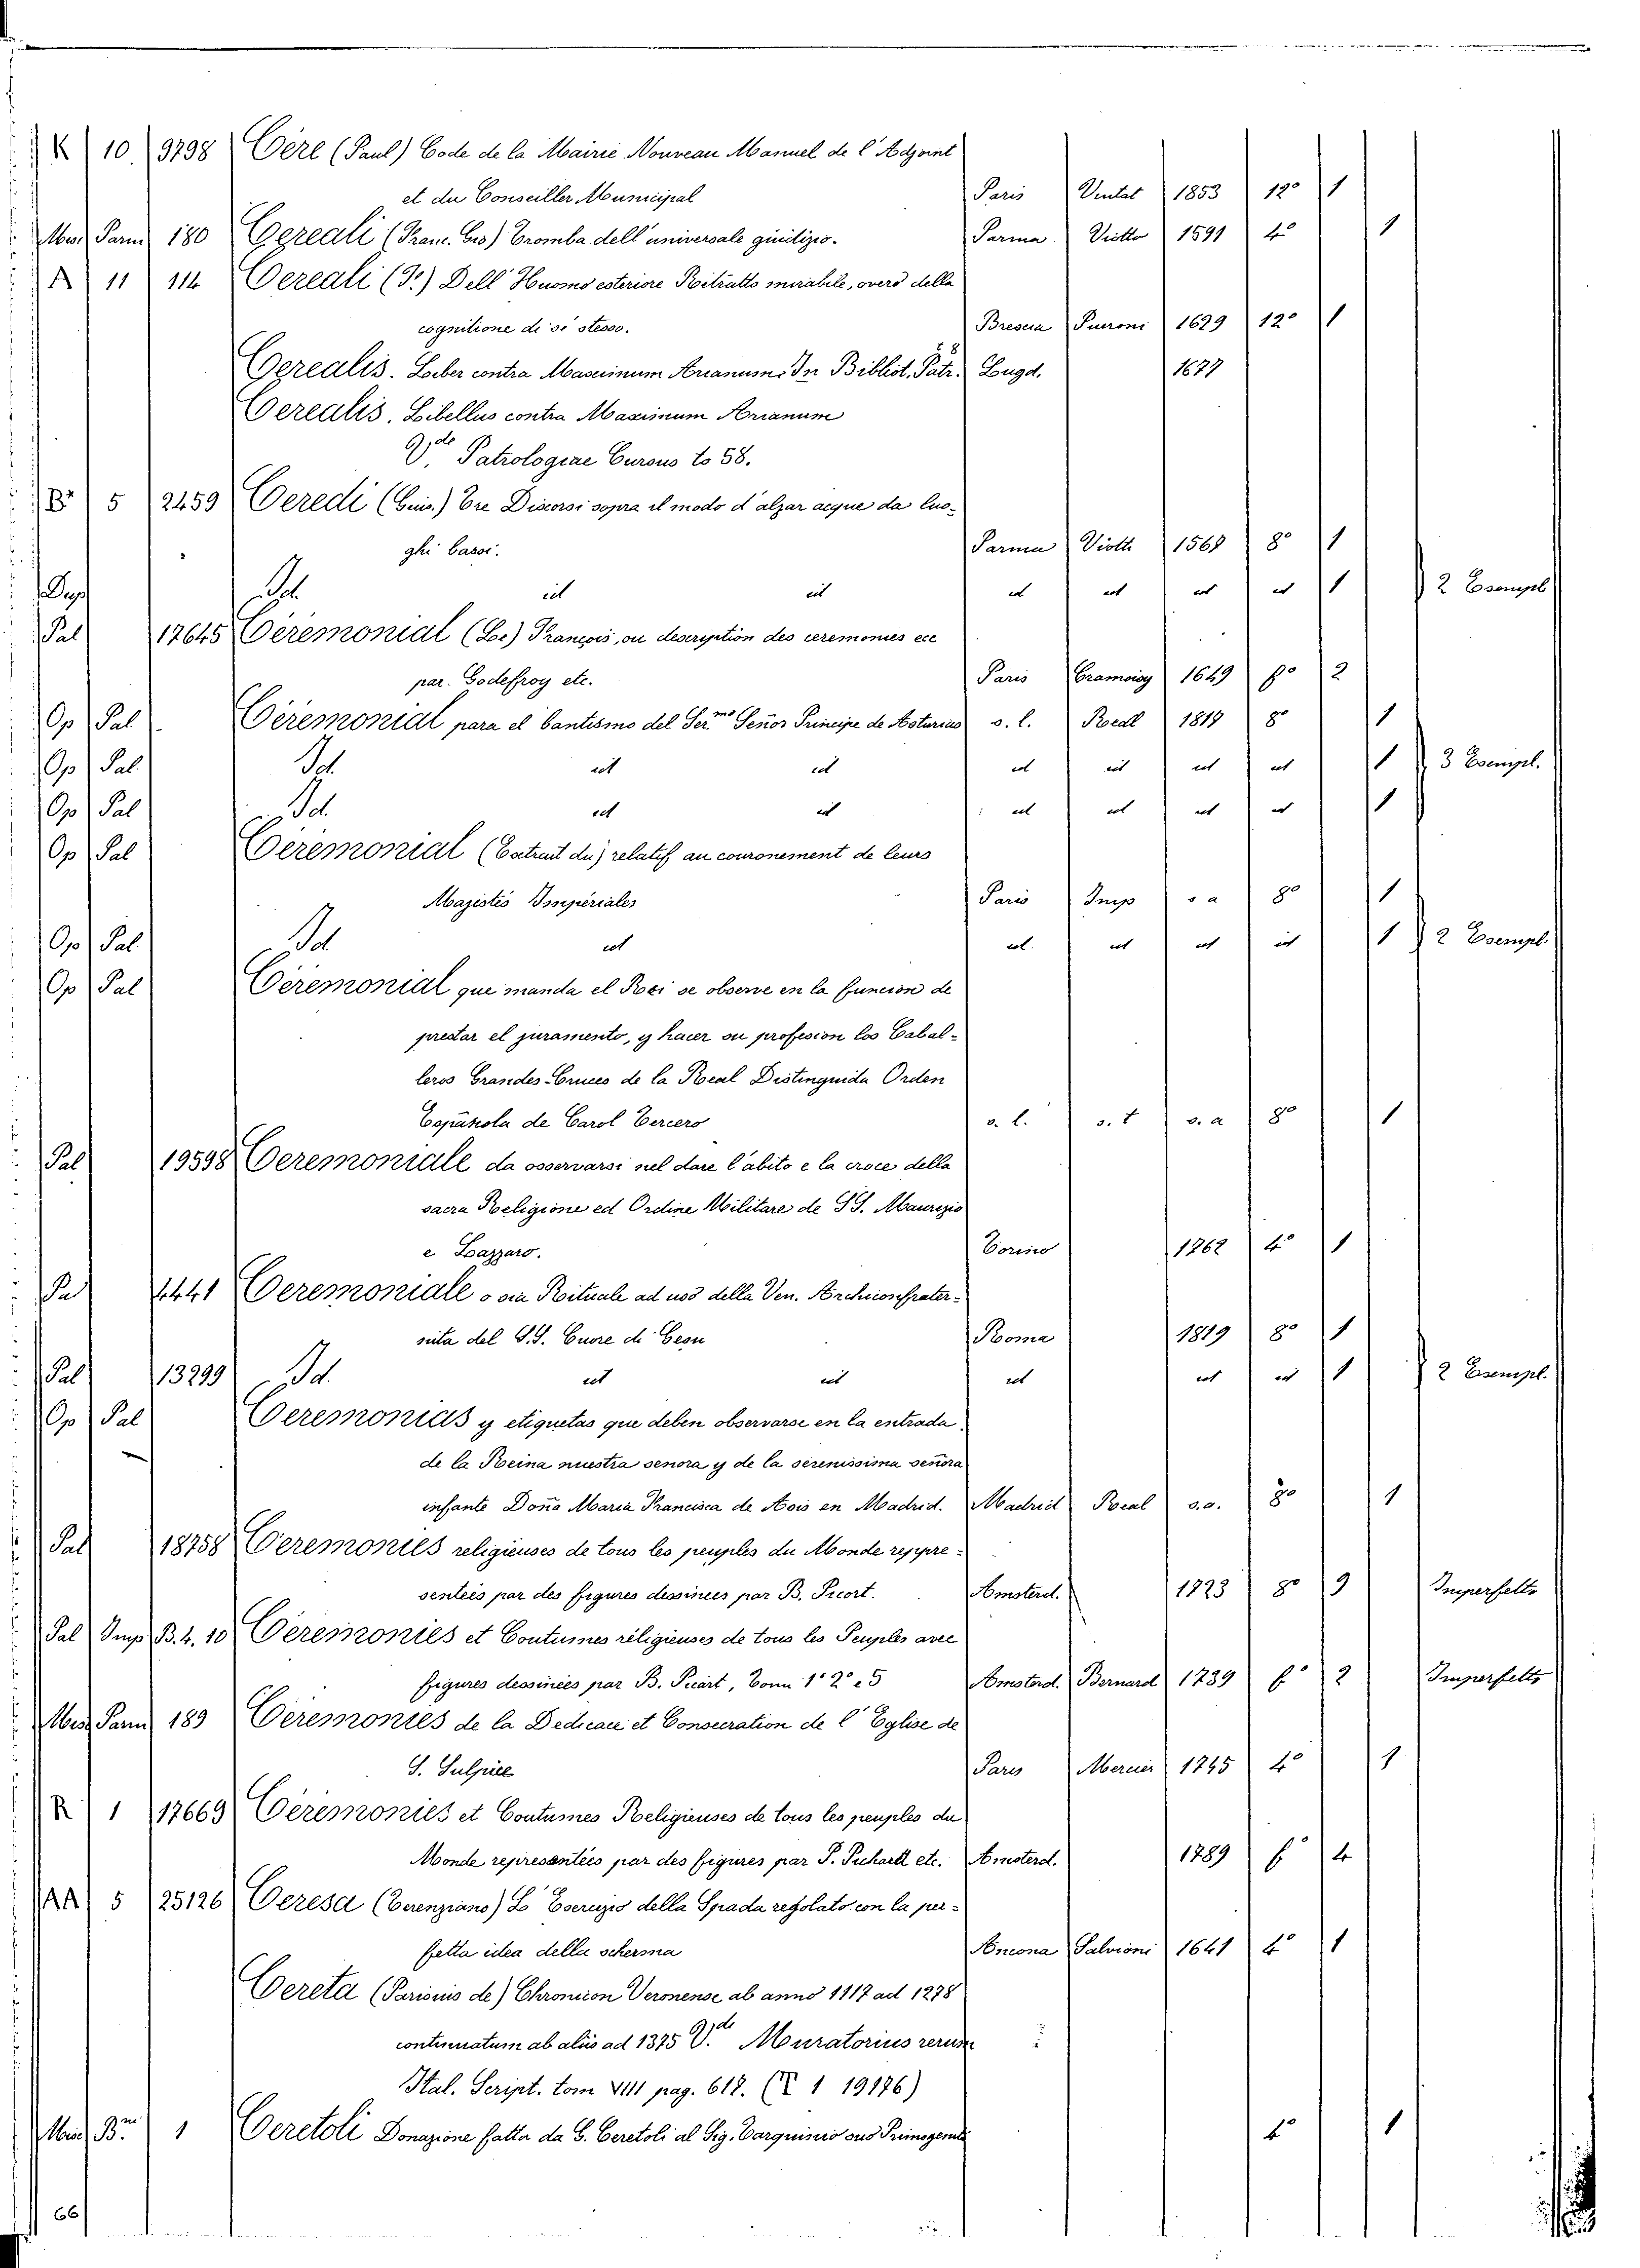 K 10 9798 Cère (Paul) Code de la Mairie Nouveau Manuel de l'Adjoint
et du Conseiller Municipal Paris 1853 12° 1
Parm 180 Cereali (Franc. Gio) Tromba dell'universale giudizio. Parma Viotto 1591 4° 1
A 11 114 Cereali (F.) Dell'Huomo esteriore Ritratto mirabile, overo della
cognitione di sè stesso. Brescia 1629 12° 1
Cerealis. Liber contra Maximum Arianum. In Bibliot. Patr. t 8 Lugd. 1677
Cerealis. Libellus contra Maximum Arianum
V.de Patrologiae Cursus to 58.
B 5 2459 Ceredi (Gius.) Tre Discorsi sopra il modo d'alzar acque da luo-
ghi bassi. Parma Viotti 1567 8° 1
Dup Id. id id id id id id 1 2 Esempl
Pal 17645 Cérémonial (Le) François, ou description des ceremonies ecc
par Godefroy etc. Paris Cramoisy 1649 f° 2
Op Pal Cérémonial para el bantismo del Ser.mo Señor Principe de Asturias s. l. Real 1817 8° 1
Op Pal Id id id id id id id 1 3 Esempl.
Op Pal Id id id id id id id 1
Op Pal Cérémonial (Extrait du) relatif au couronement de leurs
Majestés Impériales Paris Imp s a 8° 1
Op Pal Id id id id id id 1 2 Esempl.
Op Pal Cérémonial que manda el Rei se observe en la funcion de
prestar el juramento, y hacer su profesion los Cabal-
leros Grandes-Cruces de la Real Distinguida Orden
Española de Carol Tercero s. l. s. t s. a 8° 1
Pal 19598 Ceremoniale da osservarsi nel dare l'abito e la croce della
sacra Religione ed Ordine Militare de SS. Maurizio
e Lazzaro. Torino 4° 1
Pal 4441 Ceremoniale o sia Rituale ad uso della Ven. Archiconfrater-
nita del S.S. Cuore di Gesu Roma 1819 8° 1
Pal 13299 Id. id id id id id 1 2 Esempl.
Op Pal Ceremonias y etiquetas que deben observarse en la entrada
de la Reina nuestra senora y de la serenissima señora
infante Doña Maria Francisca de Asis en Madrid. Madrid Real s.a. 8° 1
Pal 18758 Ceremonies religieuses de tous les peuples du Monde reppre-
sentées par des figures dessinees par B. Picort. Amsterd. 1723 8° 9 Imperfetto
Pal Imp B. 4. 10 Cérémonies et Coutumes réligieuses de tous les Peuples avec
figures dessinées par B. Picart, Tom 1° 2° e 5 Amsterd. Bernard 1739 f° 2 Imperfetto
Parm 189 Cérémonies de la Dedicace et Consecration de l'Eglise de
S. Sulpice Paris Mercier 1745 4° 1
R 1 17669 Cérémonies et Coutumes Religieuses de tous les peuples du
Monde representées par des figures par P. Pichartt etc. Amsterd. 1789 f° 4
AA 5 25126 Ceresa (Terenziano) Lo Esercizio della Spada regolato con la per-
fetta idea della scherma Ancona Salvioni 1641 4° 1
Cereta (Parisiis de) Chronicon Veronense ab anno 1117 ad 1278
continuatum ab aliis ad 1375 V.de Muratorius rerum
Ital. Script. tom VIII pag. 617. 1 19176)
1 Ceretoli Donazione fatta da G. Ceretoli al Sig. Tarquinio suo Primogenito 4° 1
66